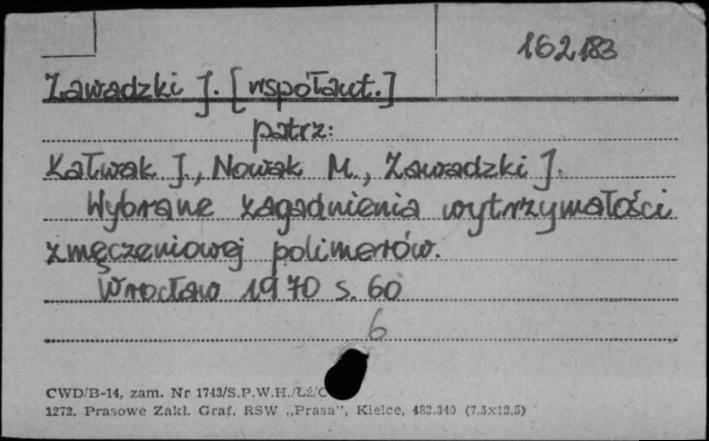 162183
Zawadzki J. [współaut.]
patrz:
Kałwak J., Nowak M., Zawadzki J.
Wybrane zagadnienia wytrzymałości
zmęczeniowej polimerów.
Wrocław 1970 s. 60
6
CWD/B-14, zam. Nr 1743/S.P.W.H./Łż/C
1272. Prasowe Zakł. Graf. RSW „Prasa”, Kielce, 483.340 (7,5x12,5)